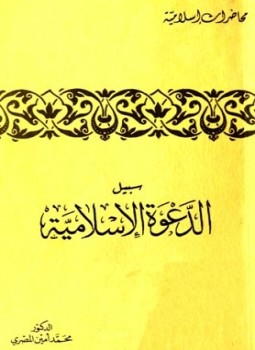 محاضرات إسلامية
سبيل
الدعوة الإسلامية
الدكتور
محمد أمين المصري